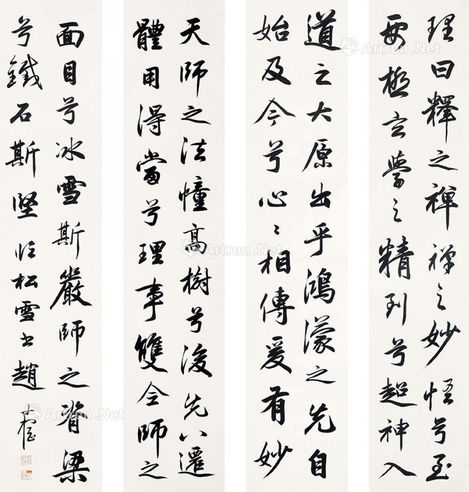 理曰釋之禪禪之妙悟兮至
要極玄學之精到兮超神入
道之大原出乎鴻濛之先自
始及今兮心心相傳爰有妙
天師之法幢高樹兮後先八遷
體用得當兮理事雙全師之
面目兮冰雪斯嚴師之脊梁
兮鐵石斯堅 臨松雪書趙